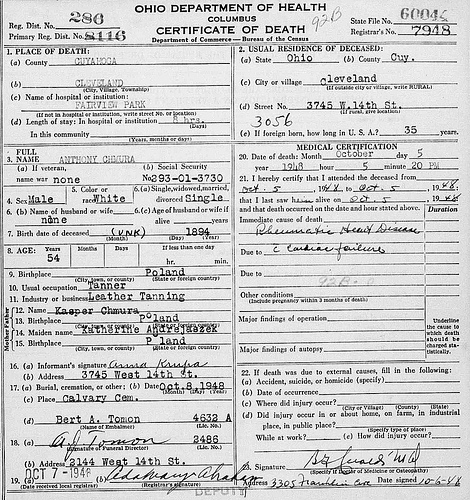 OHIO DEPARTMENT OF HEALTH
COLUMBUS
CERTIFICATE OF DEATH
Department of Commerce — Bureau of the Census
92B
Reg. Dist. No. 286
Primary Reg. Dist. No. 8116
State File No. 60045
Registrar's No. 7948
1. PLACE OF DEATH:
(a) County CUYAHOGA
(b) CLEVELAND
(City, Village, Township)
(c) Name of hospital or institution:
FAIRVIEW PARK
(If not in hospital or institution, write street No. or location)
(d) Length of stay: In hospital or institution 8 hrs.
(Days)
In this community
(Years, months or days)
2. USUAL RESIDENCE OF DECEASED:
(a) State Ohio (b) County Cuy.
(c) City or village Cleveland
(If outside city or village, write RURAL)
(d) Street No. 3745 W.14th St.
(If rural, give location)
3056
(e) If foreign born, how long in U. S. A.? 35 years.
3. FULL NAME ANTHONY CHMURA
(a) If veteran, name war none
(b) Social Security No. 293-01-3730
4. Sex Male
5. Color or race White
6. (a) Single, widowed, married, divorced Single
6. (b) Name of husband or wife none
6. (c) Age of husband or wife if alive years
7. Birth date of deceased (UNK) 1894
(Month) (Day) (Year)
8. AGE: Years Months Days If less than one day
54 hr. min.
9. Birthplace Poland
(City, town, or county) (State or foreign country)
10. Usual occupation Tanner
11. Industry or business Leather Tanning
Mother Father
12. Name Kasper Chmura
13. Birthplace Poland
(City, town, or county) (State or foreign country)
14. Maiden name Katherine Andrejaszek
15. Birthplace Poland
(City, town, or county) (State or foreign country)
16. (a) Informant's signature Anna Krupa
(b) Address 3745 West 14th St.
17. (a) Burial, cremation, or other; (b) Date Oct.8,1948
(Month) (Day) (Year)
(c) Place Calvary Cem.
(d) Bert A. Tomon 4632 A
(Name of Embalmer) (Lic. No.)
18. (a) A J Tomon 2486
(Signature of Funeral Director) (Lic. No.)
(b) Address 2144 West 14th St.
19. OCT 7 - 1948
(Date received local registrar) (Registrar's signature)
DEPUTY
MEDICAL CERTIFICATION
20. Date of death: Month October day 5
year 1948 hour 5 minute 20 PM
21. I hereby certify that I attended the deceased from
Oct. 5, 1948, to Oct. 5, 1948,
that I last saw him alive on Oct 5, 1948,
and that death occurred on the date and hour stated above.
Duration
Immediate cause of death
Rheumatic Heart Disease
Due to c cardiac failure
Due to
Other conditions
(Include pregnancy within 3 months of death)
Major findings of operation
Major findings of autopsy
Underline the cause to which death should be charged statistically.
22. If death was due to external causes, fill in the following:
(a) Accident, suicide, or homicide (specify)
(b) Date of occurrence
(c) Where did injury occur?
(City or Village) (County) (State)
(d) Did injury occur in or about home, on farm, in industrial place, in public place?
(Specify type of place)
While at work? (e) How did injury occur?
23. Signature
(Specify if Doctor of Medicine or Osteopathy)
Address 3305 Franklin Ave Date signed 10-6-48